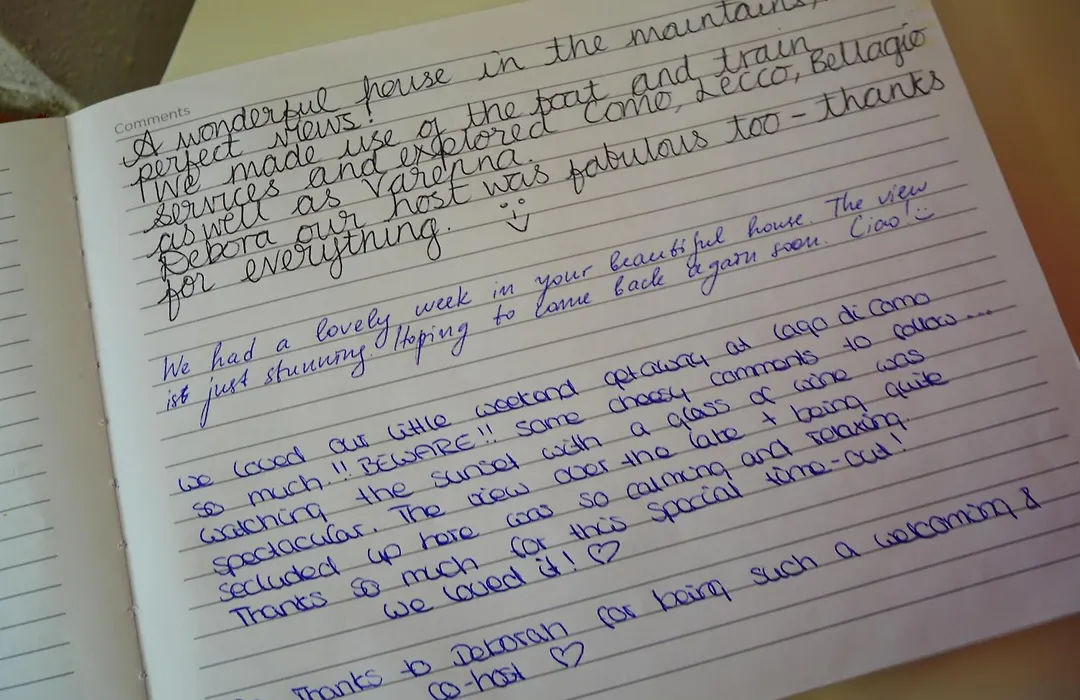 Comments
A wonderful house in the maintains,
perfect views!
We made use of the boat and train
services and explored Como, Lecco, Bellagio
as well as Varenna.
Debora our host was fabulous too - thanks
for everything.
We had a lovely week in your beautiful house. The view
ist just stunning. Hoping to come back again soon. Ciao!
we loved our little weekend getaway at lago di Como
so much!! BEWARE!! some cheesy comments to follow...
watching the sunset with a glass of wine was
spectacular. The view over the lake + being quite
secluded up here was so calming and relaxing.
Thanks so much for this special time-out!
we loved it! ♡
Thanks to Deborah for being such a welcoming &
co-host ♡